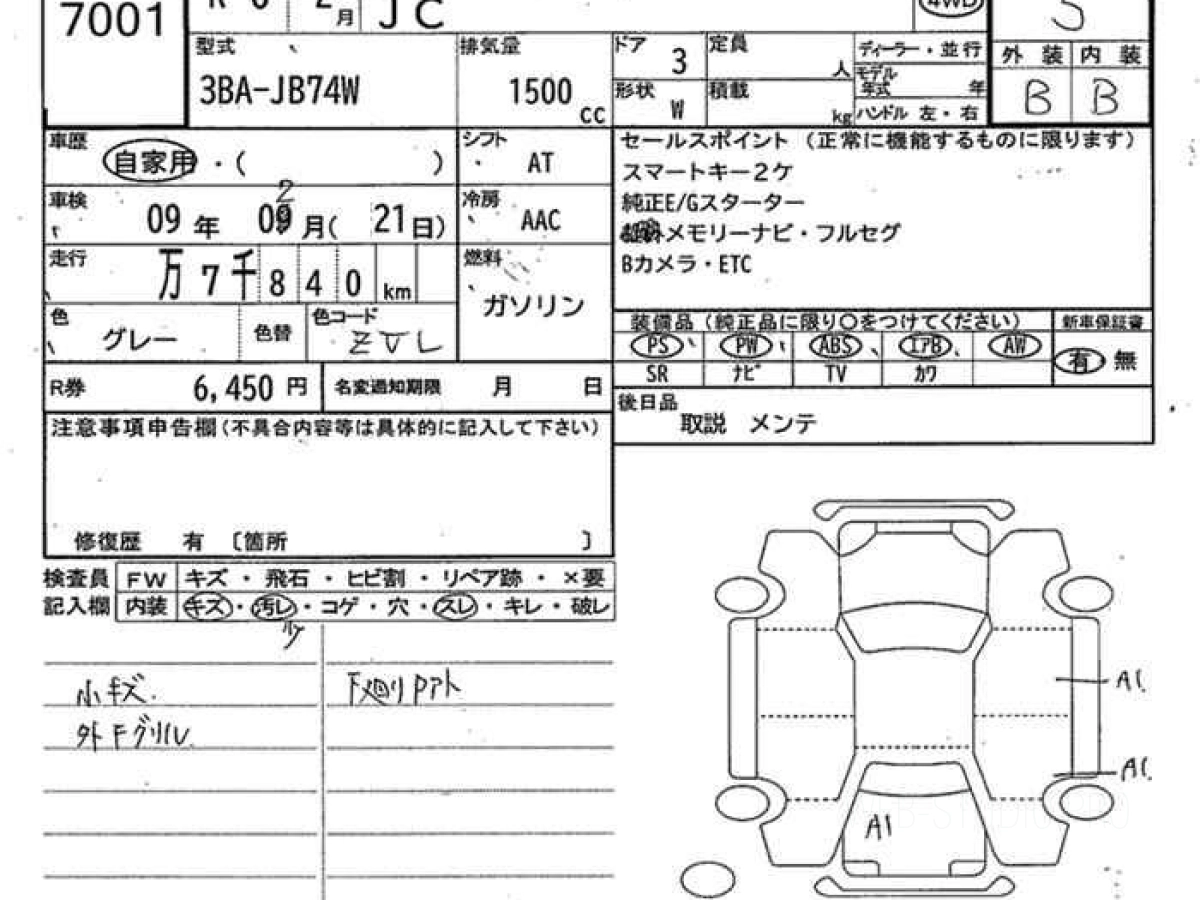 7001
JC
4WD
型式 排気量 ドア 3 定員 人 ディーラー・並行 外装 内装
3BA-JB74W 1500 cc 形状 W 積載 kg モデル年式 年 B B
ハンドル 左・右
車歴 自家用・( ) シフト AT
車検 09年 09月(21日) 2 冷房 AAC
走行 万7千840km 燃料 ガソリン
色 グレー 色替 色コード ZVL
R券 6,450円 名変通知期限 月 日
セールスポイント (正常に機能するものに限ります)
スマートキー2ケ
純正E/Gスターター
メモリーナビ・フルセグ
Bカメラ・ETC
装備品(純正品に限り○をつけてください) 新車保証書
PS PW ABS エアB AW 有 無
SR ナビ TV カワ
後日品
取説 メンテ
注意事項申告欄(不具合内容等は具体的に記入して下さい)
修復歴 有 〔箇所 〕
検査員 FW キズ・飛石・ヒビ割・リペア跡・×要
記入欄 内装 キズ・汚レ・コゲ・穴・スレ・キレ・破レ
小キズ. 下廻りPアト
外Fグリル
A1
A1
A1